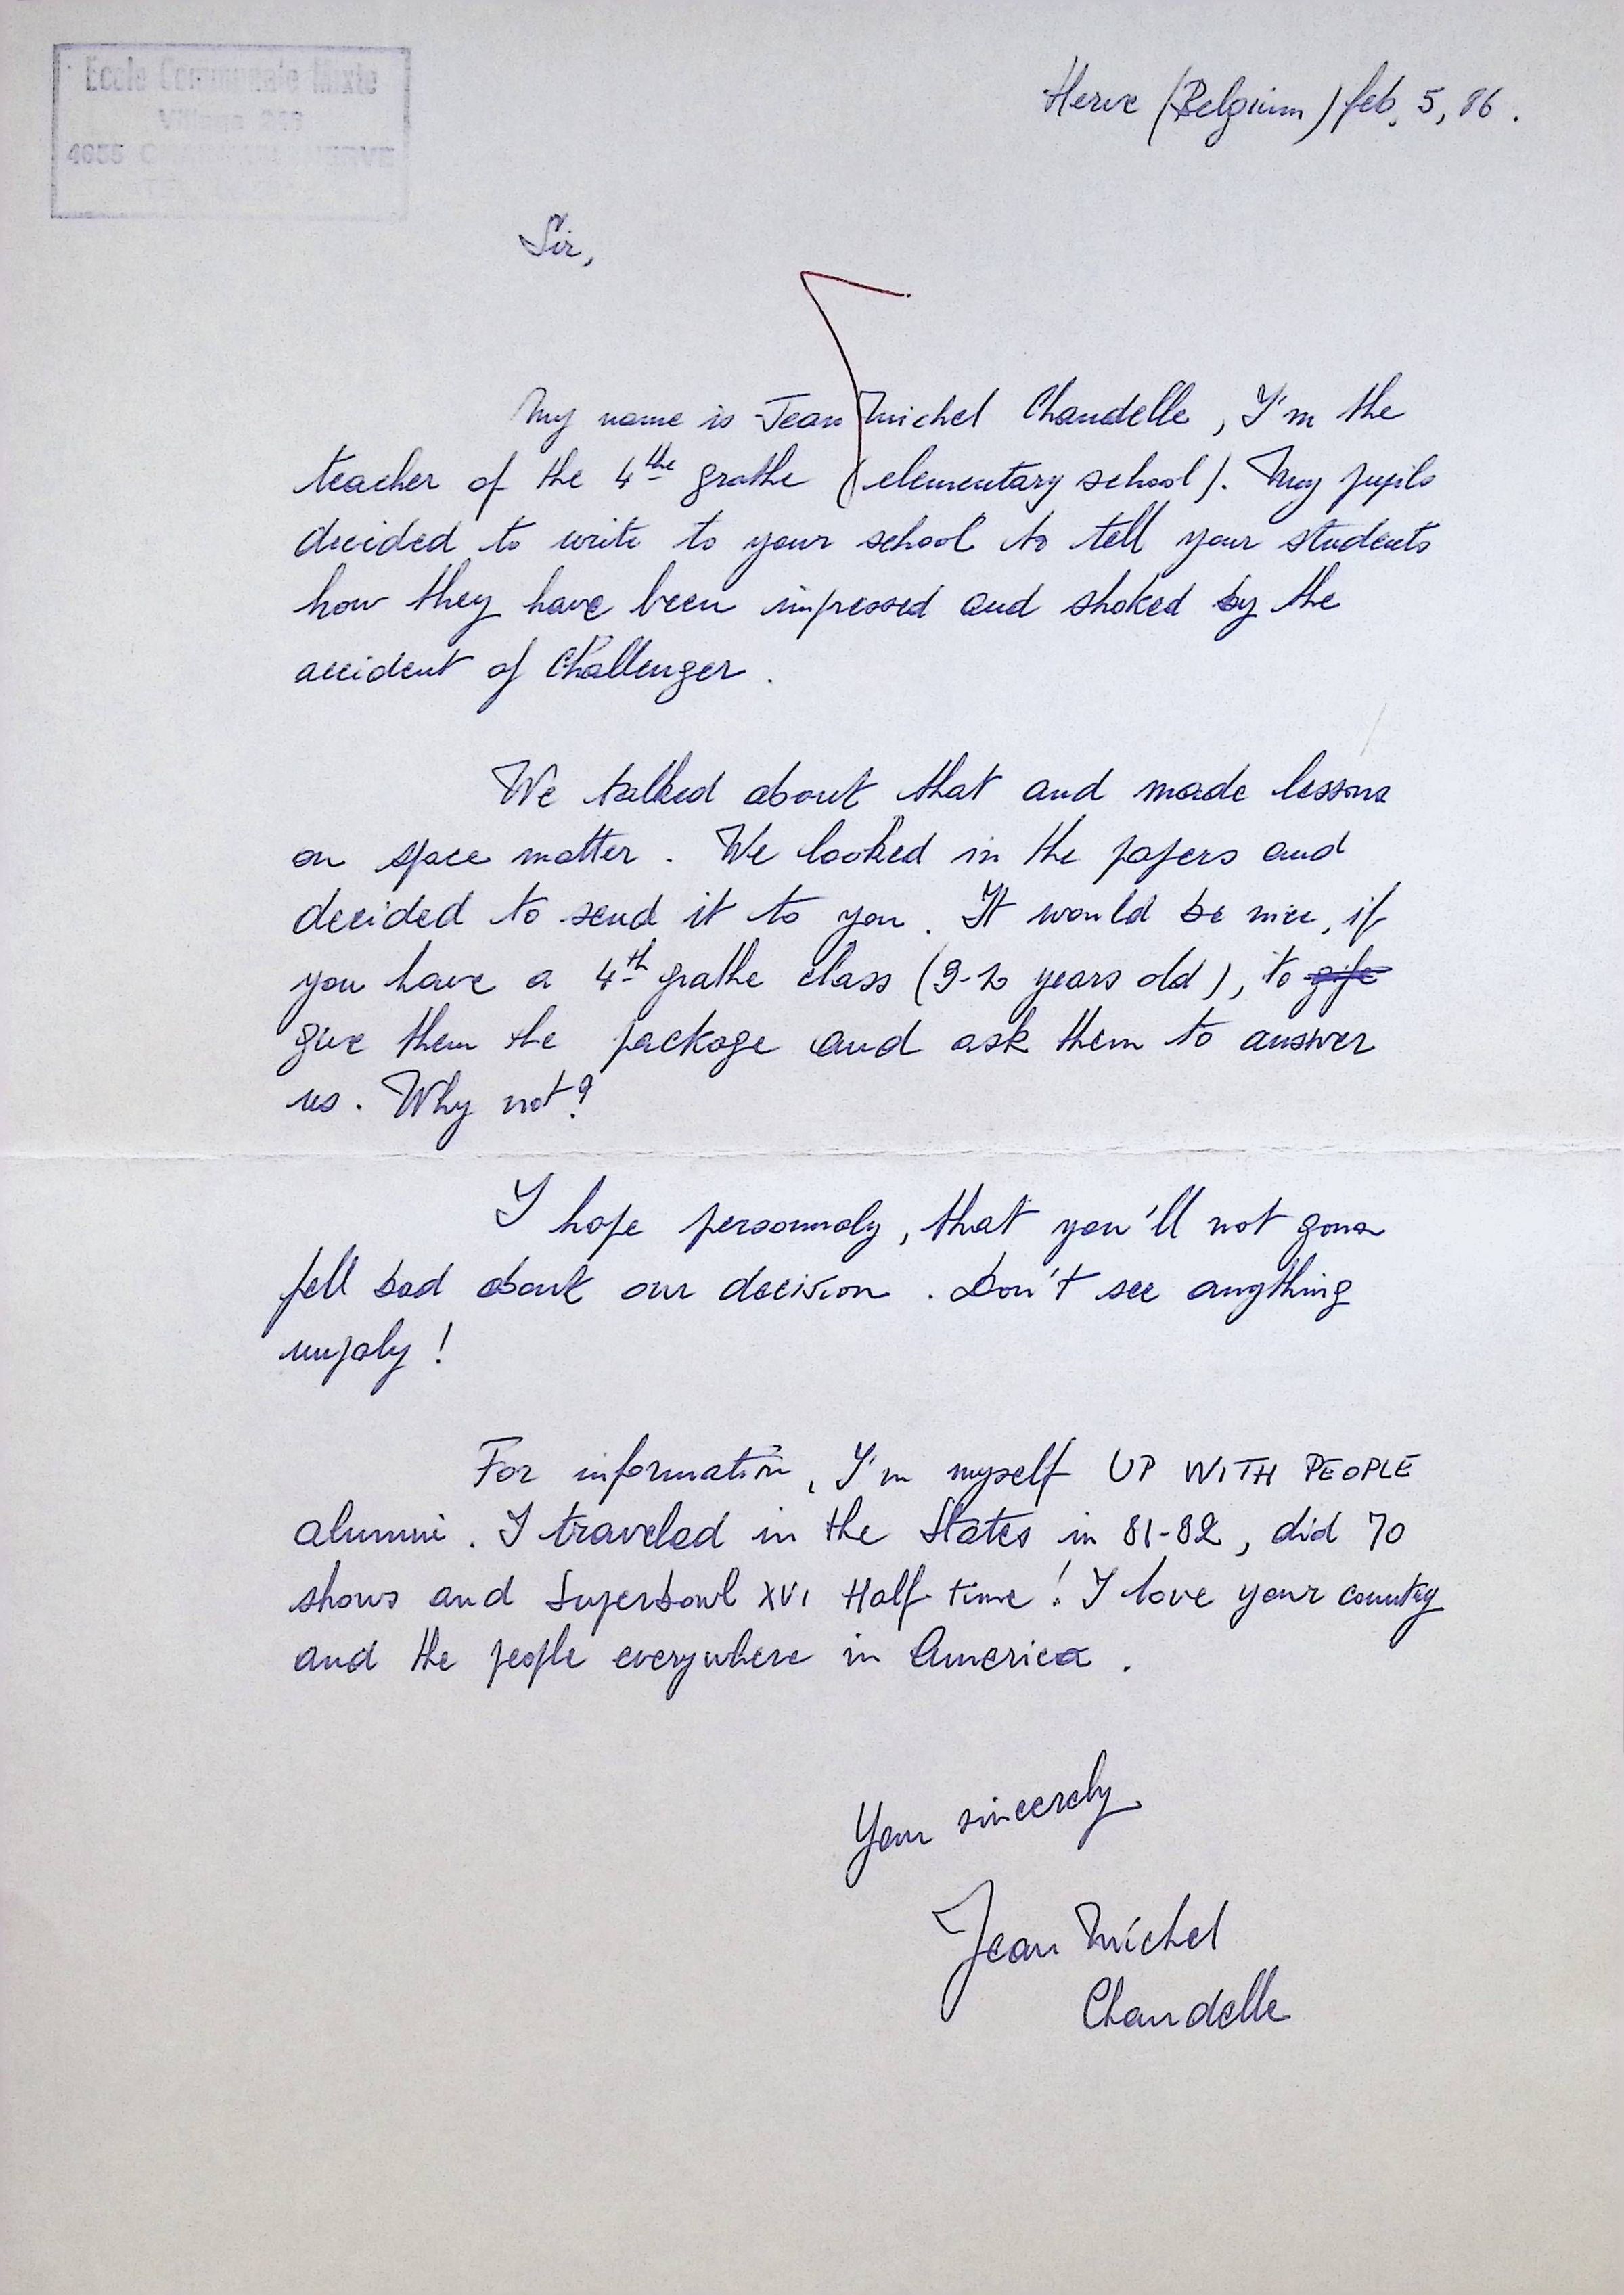 Ecole Communale Mixte
4655
HERVE
Herve (Belgium) feb. 5, 86.
Sir,
My name is Jean Michel Chandelle, I'm the
teacher of the 4the grathe (elementary school). My pupils
decided to write to your school to tell your students
how they have been impressed and shoked by the
accident of Challenger.
We talked about that and made lessons
on space matter. We looked in the papers and
decided to send it to you. It would be nice, if
you have a 4th grathe class (9-10 years old), to gife
give them the package and ask them to answer
us. Why not?
I hope personnaly, that you'll not gonna
fell bad about our decision. Don't see anything
!
For information, I'm myself UP WITH PEOPLE
alumni. I traveled in the States in 81-82, did 70
shows and Superbowl XVI Half time! I love your country
and the people everywhere in America.
Your sincerely
Jean Michel
Chandelle